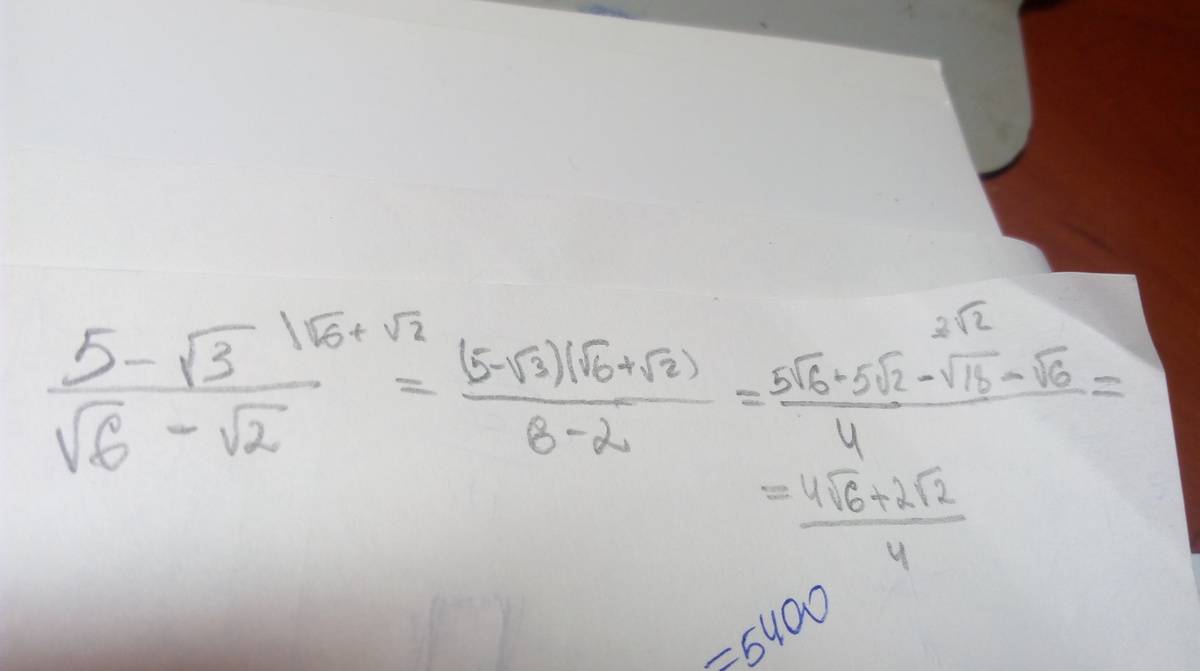 5 - √3 \√6 + √2
√6 - √2
= (5-√3)(√6+√2)
6 - 2
3√2
= 5√6+5√2-√18-√6 =
4
= 4√6+2√2
4
=5400